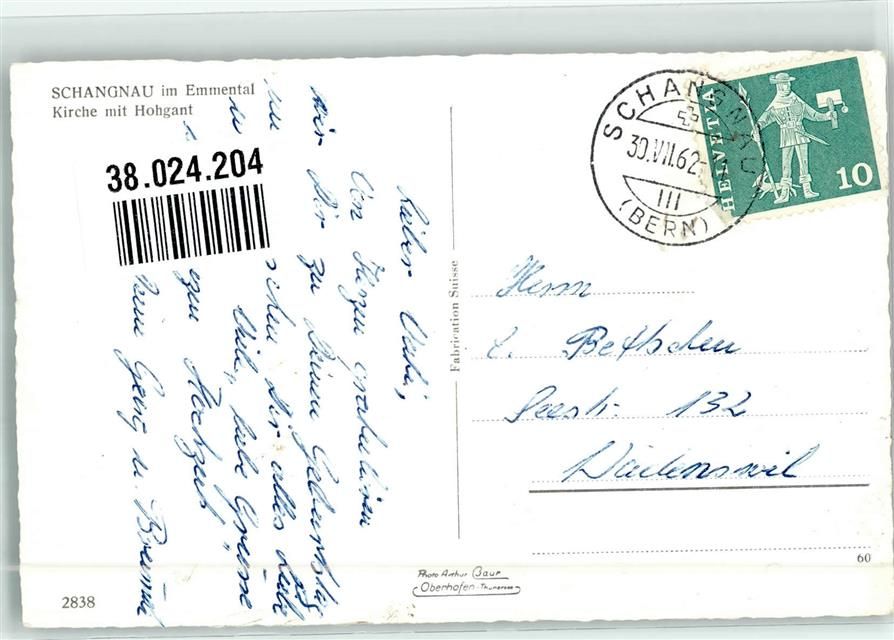 SCHANGNAU im Emmental
Kirche mit Hohgant
38.024.204
Lieber Vati,
Von Herzen gratulieren
wir Dir zu Deinem Geburtstag
und
alles Gute
Viele liebe Grüsse
Hochzeit
Georg u.
Fabrication Suisse
SCHANGNAU
30.VII.62
III
(BERN)
HELVETIA
10
Herrn
E. Bettschen
Seestr. 132
Wädenswil
60
Photo Arthur Baur
Oberhofen-Thunersee
2838